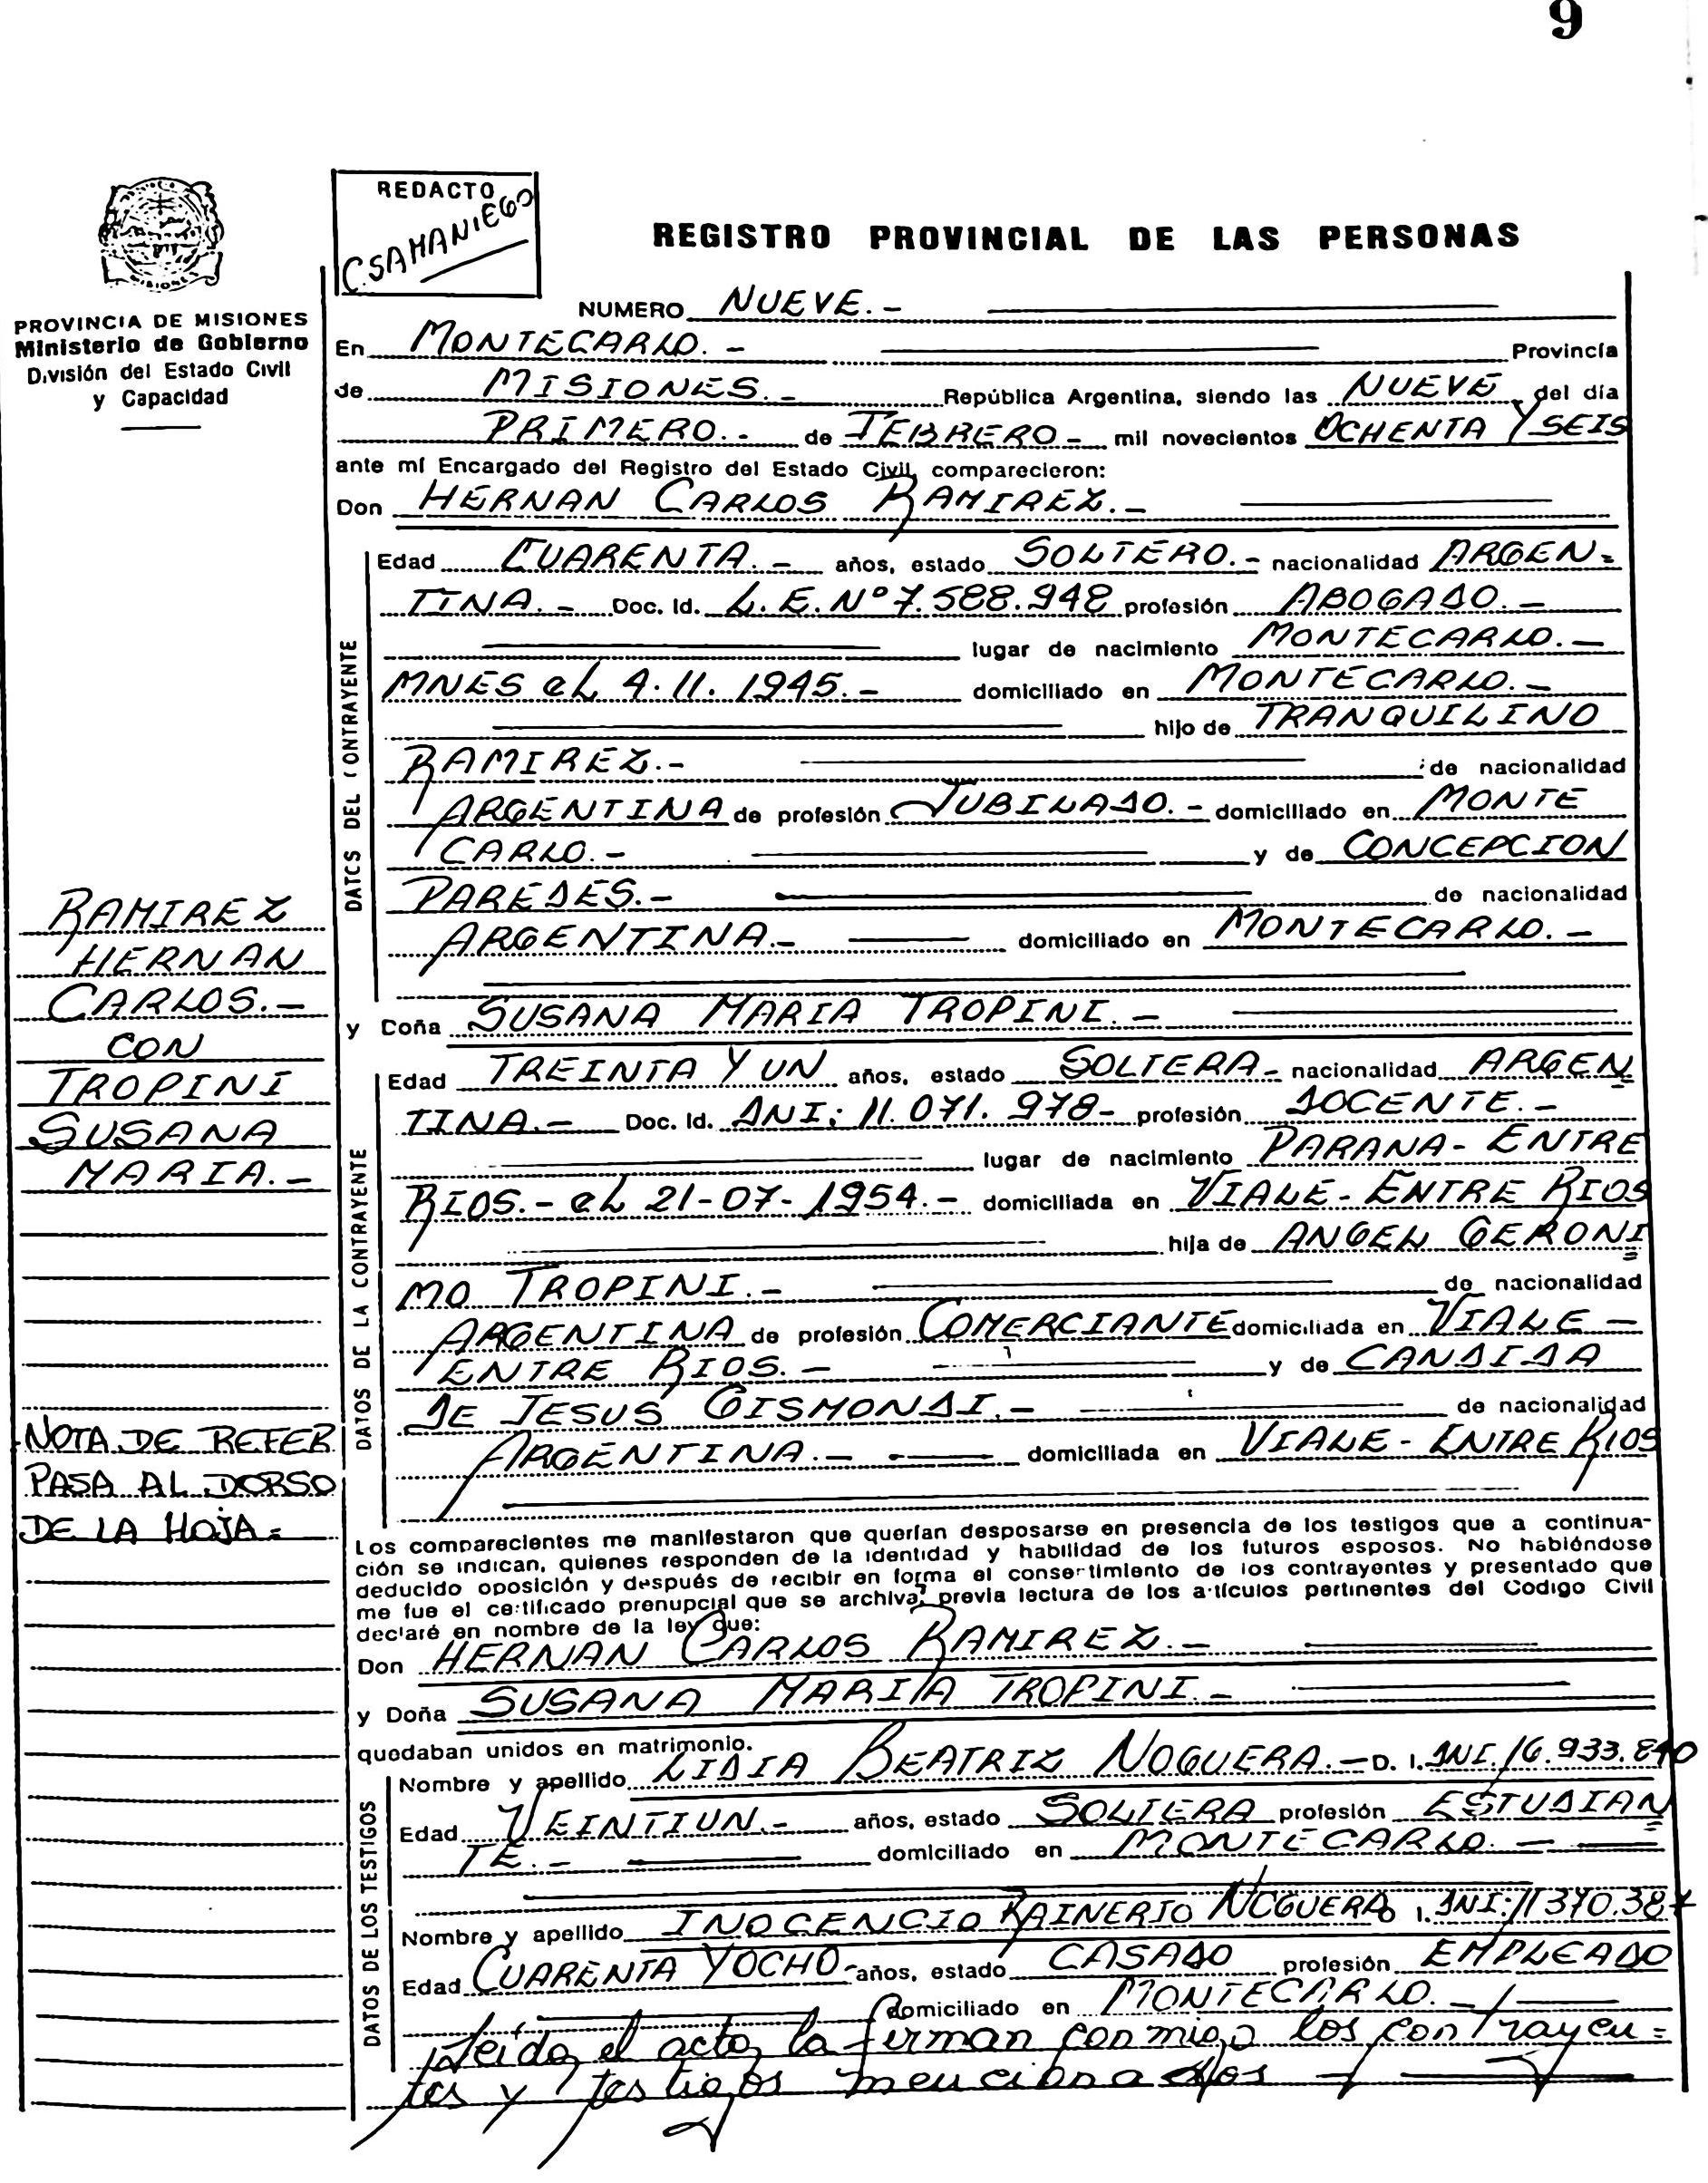 9
REDACTO
C. SAMANIEGO
REGISTRO PROVINCIAL DE LAS PERSONAS
PROVINCIA DE MISIONES
Ministerio de Gobierno
División del Estado Civil
y Capacidad
NUMERO NUEVE.-
En MONTECARLO.- Provincia
de MISIONES.- República Argentina, siendo las NUEVE del día
PRIMERO.- de FEBRERO- mil novecientos OCHENTA Y SEIS
ante mí Encargado del Registro del Estado Civil, comparecieron:
Don HERNAN CARLOS RAMIREZ.-
DATOS DEL CONTRAYENTE
Edad CUARENTA.- años, estado SOLTERO.- nacionalidad ARGEN=
TINA.- Doc. Id. L.E.Nº 7.588.948 profesión ABOGADO.-
lugar de nacimiento MONTECARLO.-
MNES el 4.11.1945.- domiciliado en MONTECARLO.-
hijo de TRANQUILINO
RAMIREZ.- de nacionalidad
ARGENTINA de profesión JUBILADO.- domiciliado en MONTE
CARLO.- y de CONCEPCION
PAREDES.- de nacionalidad
ARGENTINA.- domiciliado en MONTECARLO.-
y Doña SUSANA MARIA TROPINI.-
DATOS DE LA CONTRAYENTE
Edad TREINTA Y UN años, estado SOLTERA- nacionalidad ARGEN=
TINA.- Doc. Id. DNI: 11.071.978- profesión DOCENTE.-
lugar de nacimiento PARANA- ENTRE
RIOS.- el 21-07-1954.- domiciliada en VIALE- ENTRE RIOS
hija de ANGEL GERONI=
MO TROPINI.- de nacionalidad
ARGENTINA de profesión COMERCIANTE domiciliada en VIALE-
ENTRE RIOS.- y de CANDIDA
DE JESUS GISMONDI.- de nacionalidad
ARGENTINA.- domiciliada en VIALE- ENTRE RIOS
Los comparecientes me manifestaron que querían desposarse en presencia de los testigos que a continua-
ción se indican, quienes responden de la identidad y habilidad de los futuros esposos. No habiéndose
deducido oposición y después de recibir en forma el consertimiento de los contrayentes y presentado que
me fue el certificado prenupcial que se archiva, previa lectura de los artículos pertinentes del Codigo Civil
declaré en nombre de la ley que:
Don HERNAN CARLOS RAMIREZ.-
y Doña SUSANA MARIA TROPINI.-
quedaban unidos en matrimonio.
DATOS DE LOS TESTIGOS
Nombre y apellido LIDIA BEATRIZ NOGUERA.- D. I. DNI. 16.933.840
Edad VEINTIUN.- años, estado SOLTERA profesión ESTUDIAN=
TE.- domiciliado en MONTECARLO.-
Nombre y apellido INOCENCIO RAINERIO NOGUERA D I. DNI: 11370.387
Edad CUARENTA Y OCHO- años, estado CASADO profesión EMPLEADO
domiciliado en MONTECARLO.-
Leida el acta, la firman conmigo los contrayen=
tes y testigos mencionados
RAMIREZ
HERNAN
CARLOS.-
CON
TROPINI
SUSANA
MARIA.-
NOTA DE REFER
PASA AL DORSO
DE LA HOJA=